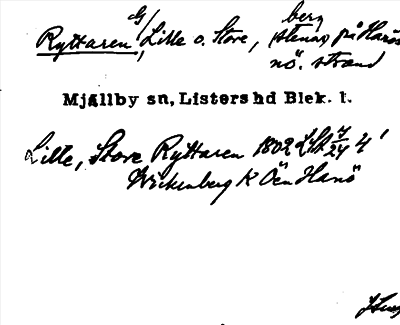 Ryttaren, Lille o. Store, berg (stenar) på Hanös
nö. strand
Mjällby sn, Listers hd Blek. l.
Lille, Store Ryttaren 1802 LSA 7/24 4'
Wickenberg K Öen Hanö